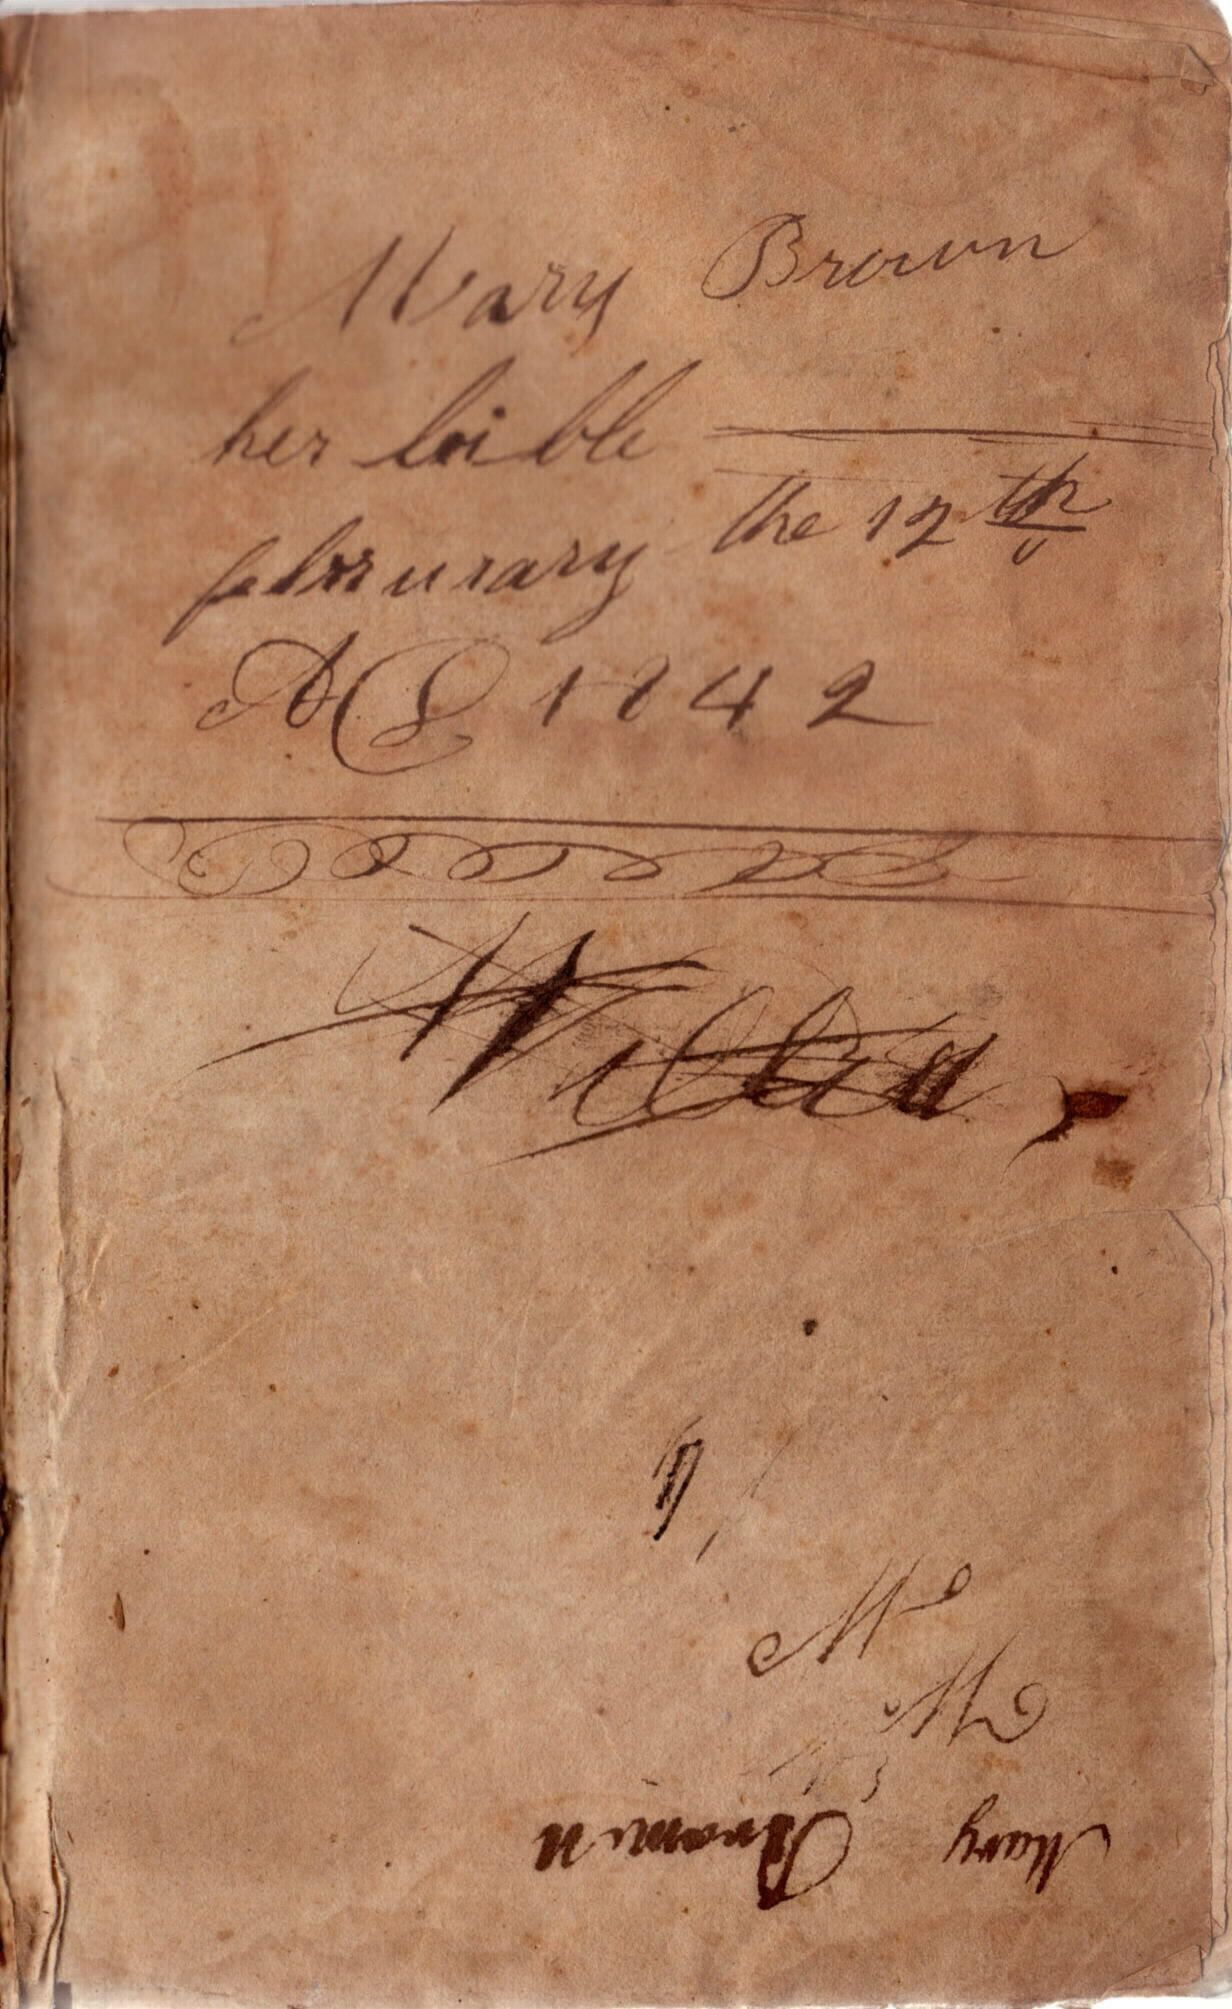 Mary Brown
her bible
februrary the 12th
AD 1842
M
M
Mary Brown